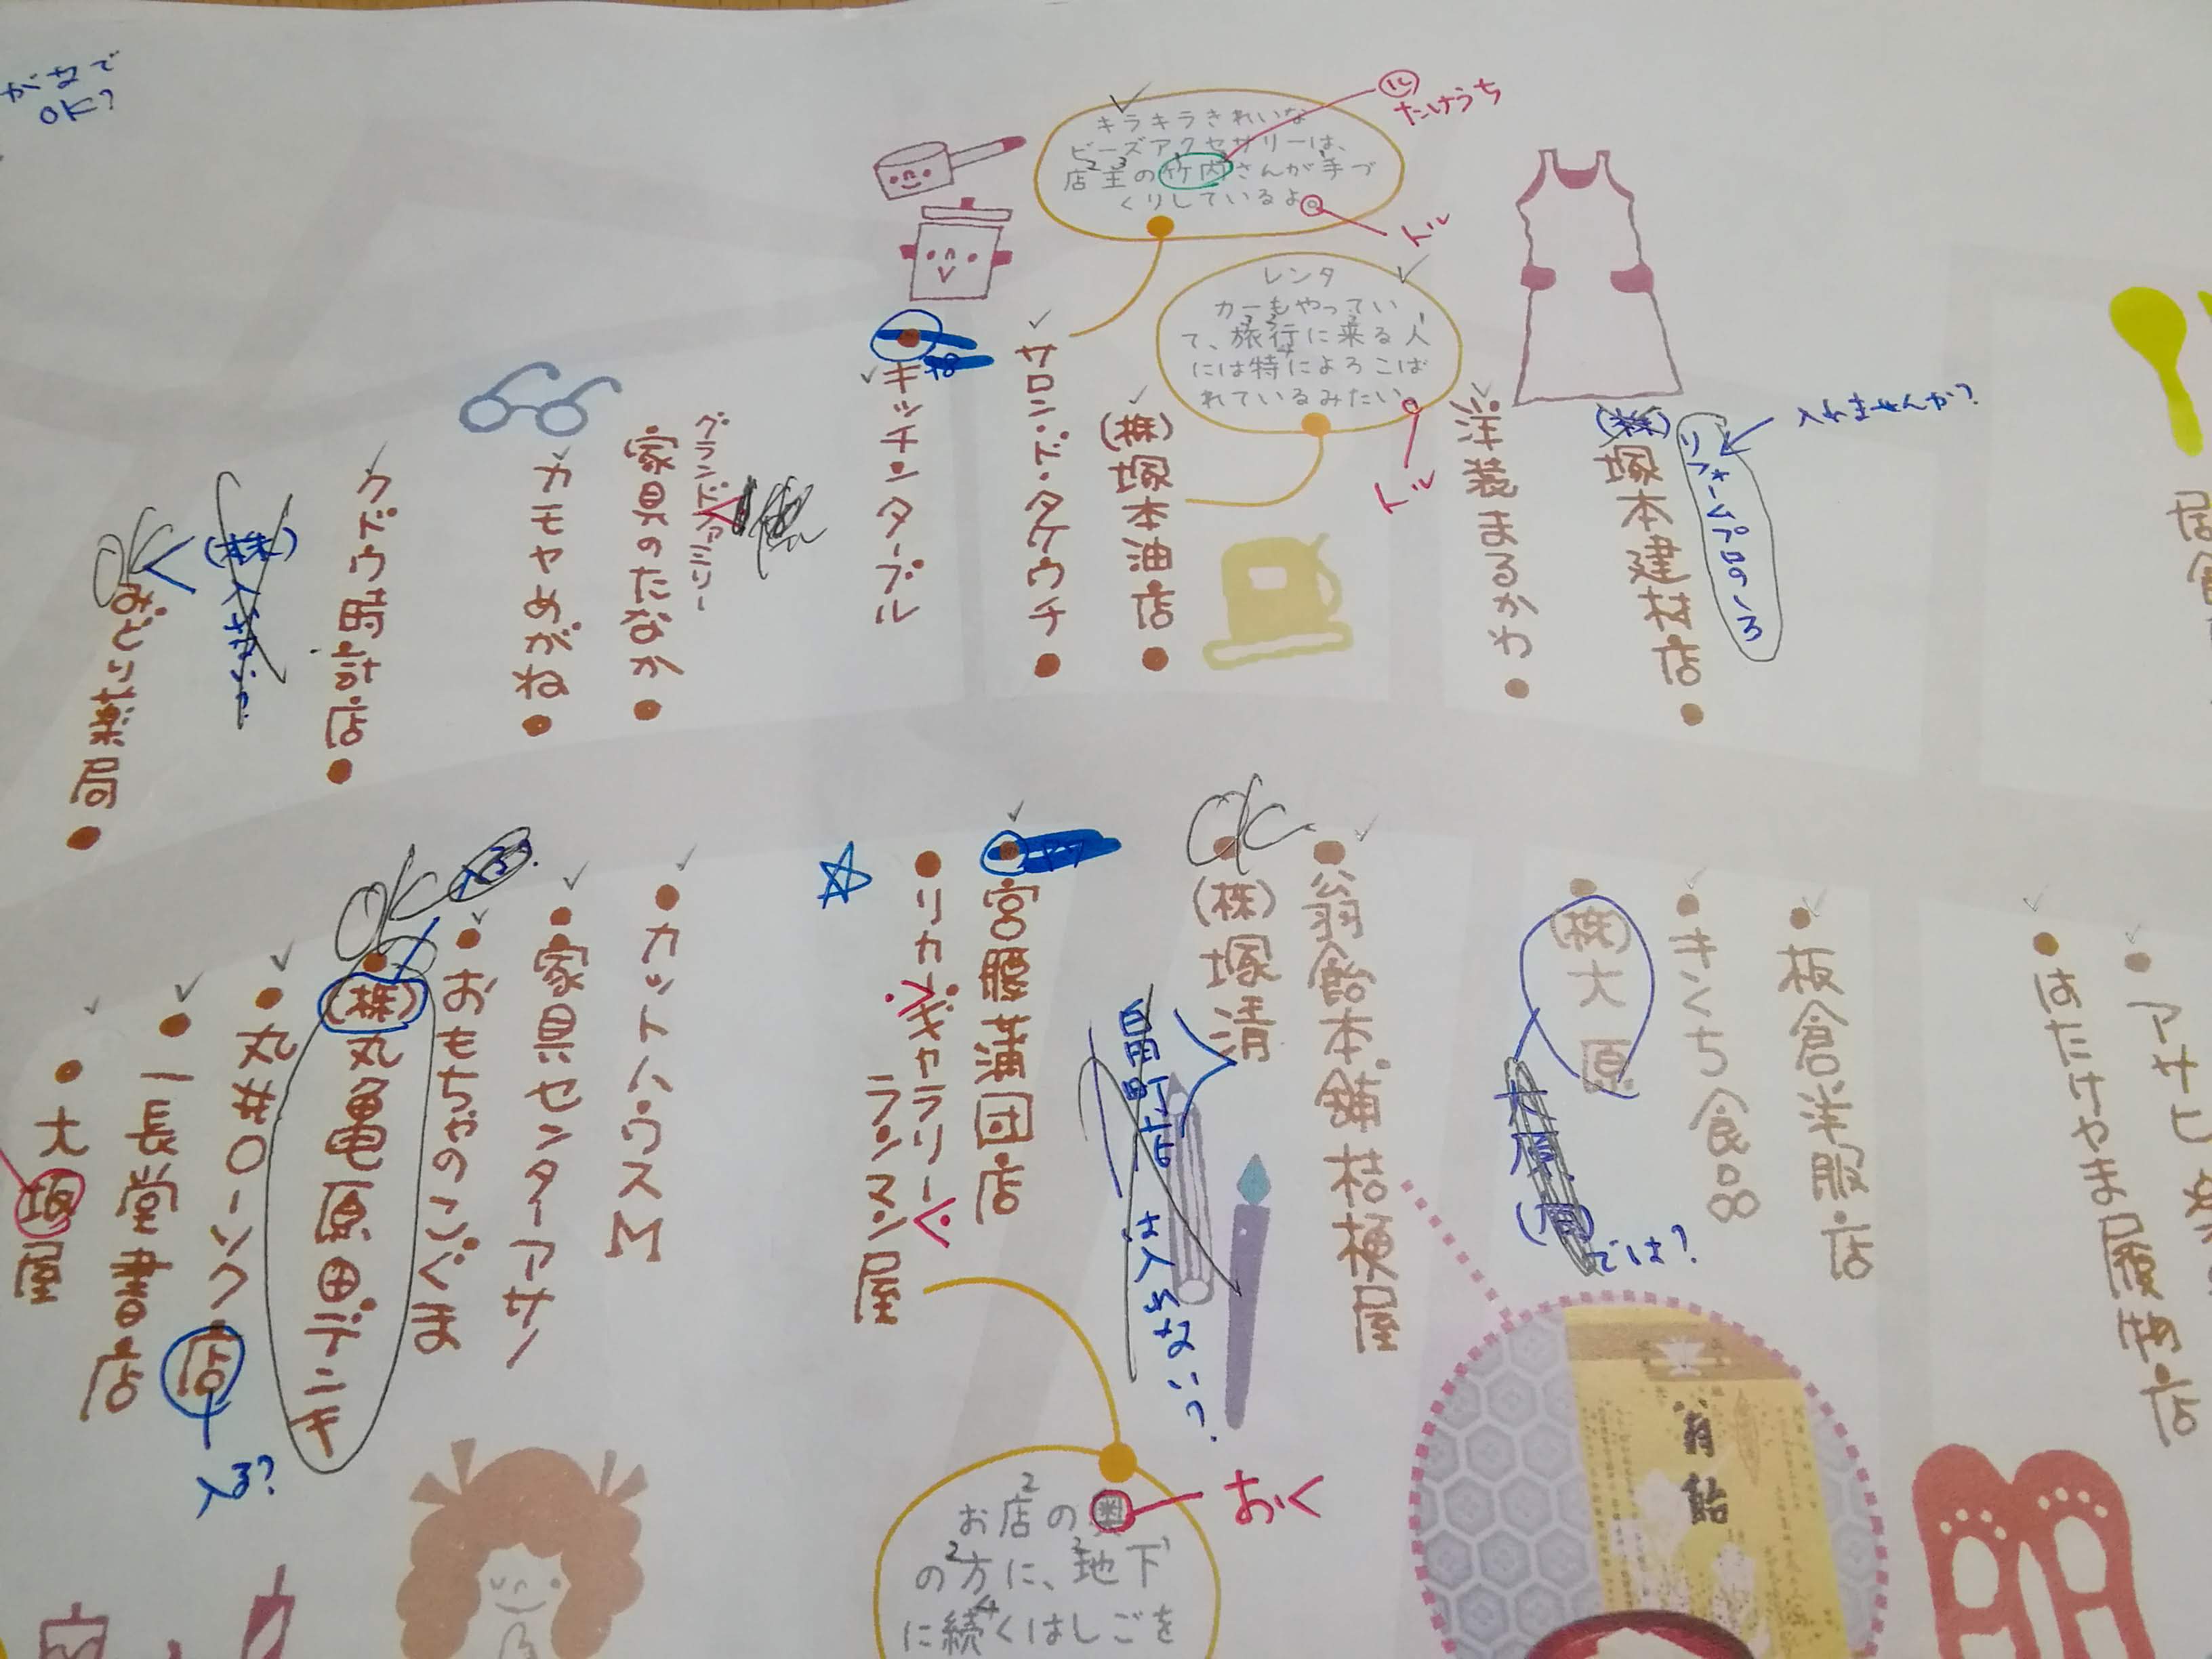 がなで
OK?
キラキラきれいな
ビーズアクセサリーは、
店主の竹内さんが手づ
くりしているよ。
たけうち
トル
レンタ
カーもやってい
て、旅行に来る人
には特によろこば
れているみたい。
トル
入れませんか?
リフォームプロのノろ
(株)塚本建材店
洋装まるかわ
(株)塚本油店
サロン・ド・タケウチ
キッチンターブル
グランドファミリー
家具のたなか
カモヤめがね
クドウ時計店
(株)
OK
みどり薬局
アサヒ
はたけやま履物店
板倉洋服店
きくち食品
(株)大原
大原
では?
翁飴本舗桔梗屋
OK
(株)塚清
昌町店は入れない?
宮腰蒲団店
リカーギャラリー
ランマン屋
カットハウスM
家具センターアサノ
おもちゃのこぐま
OK
入る?
(株)丸亀原田デンキ
丸井ローソク店
入る?
一長堂書店
大坂屋
お店の奥
の方に、地下
に続くはしごを
おく
翁飴